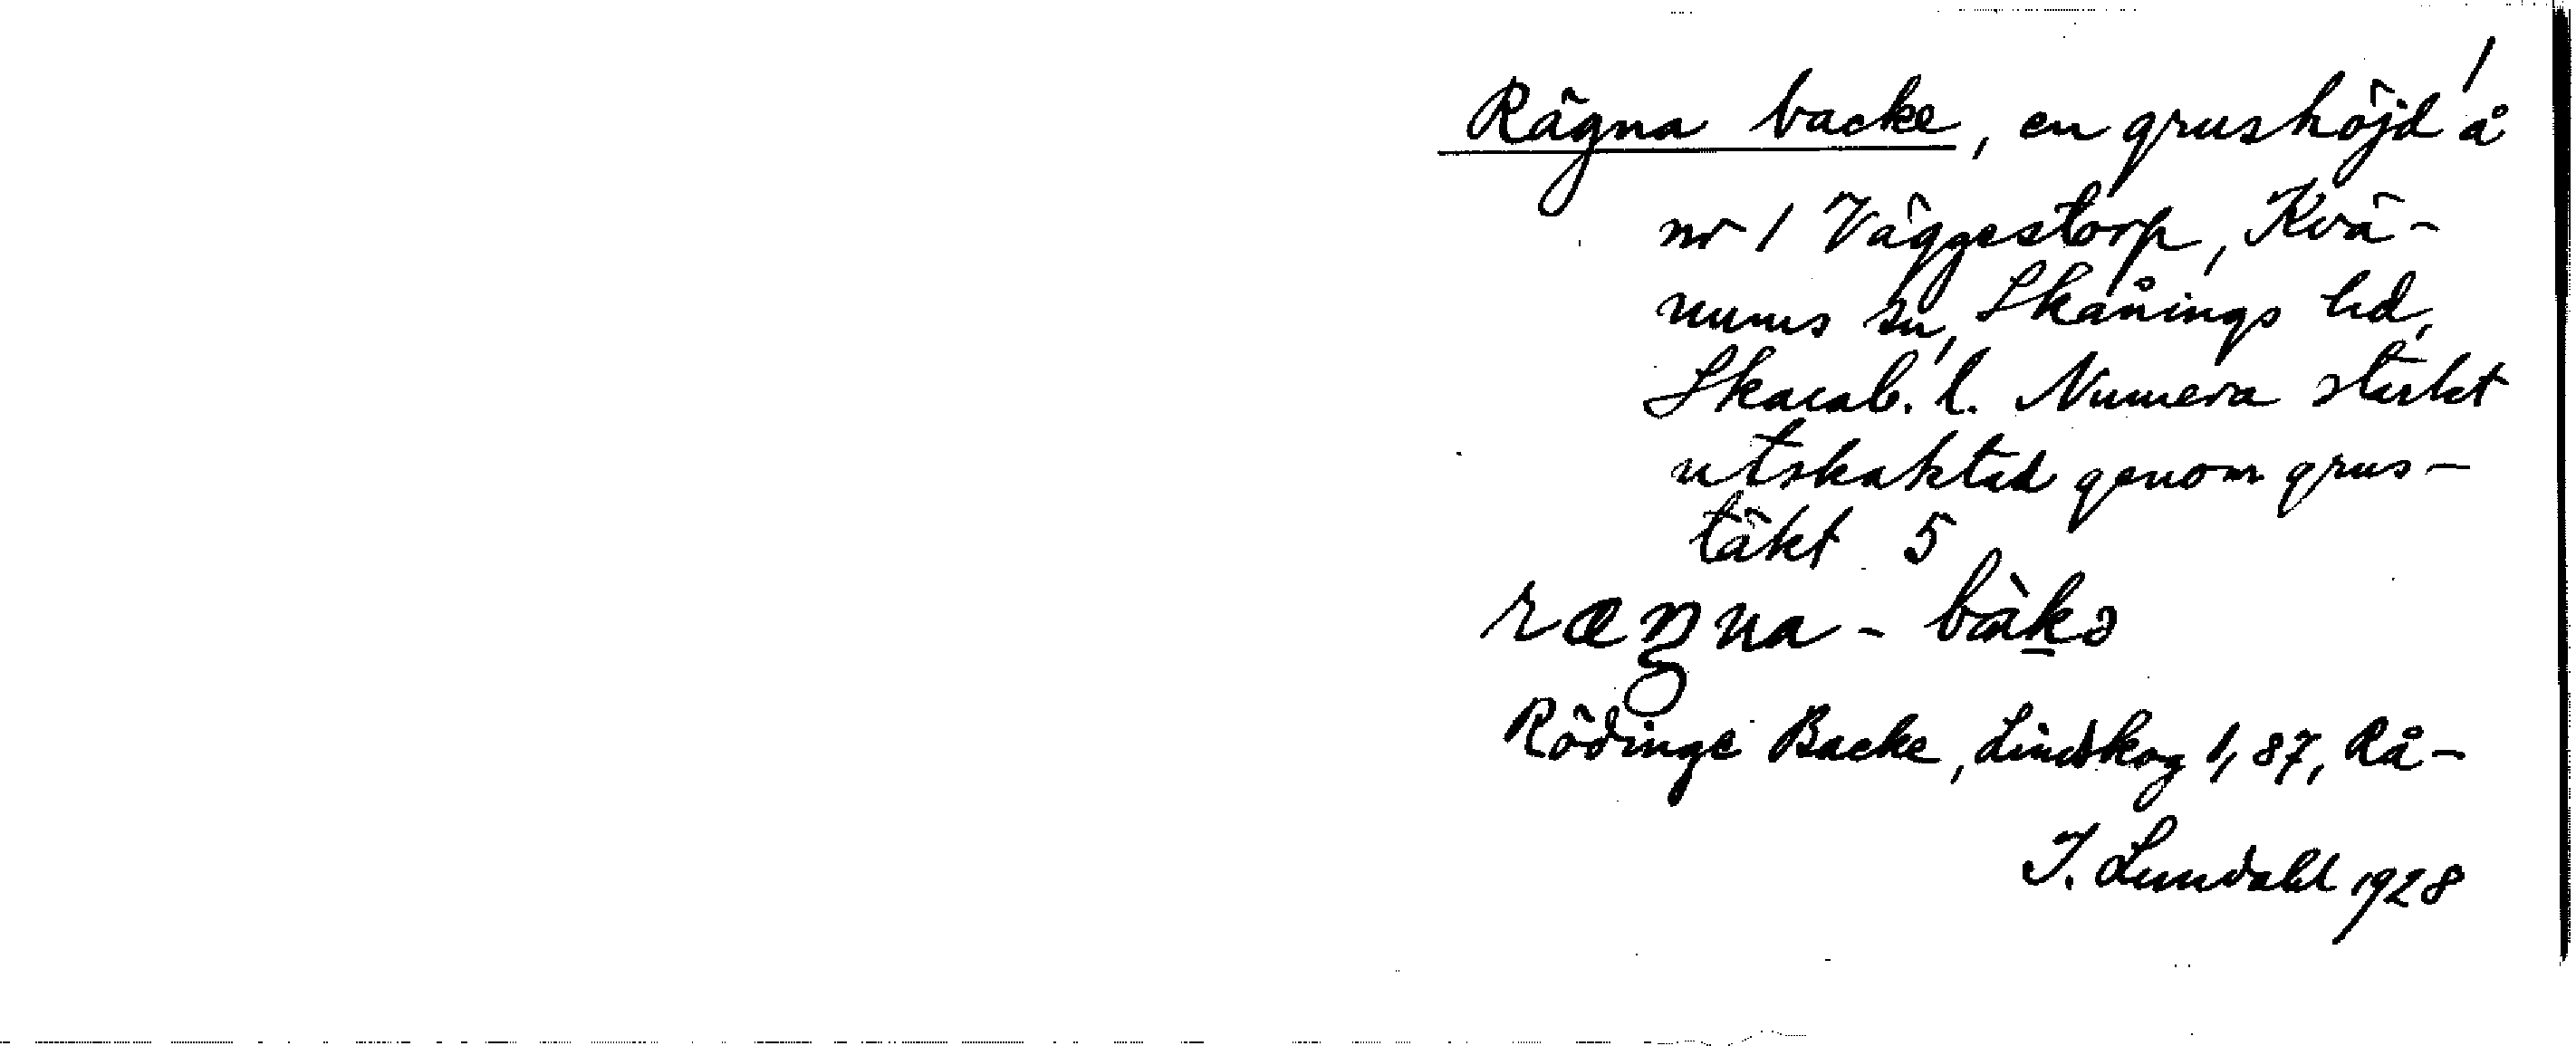 1
Rägna backe, en grushöjd å
nr 1 Väggestorp, Kvä-
nums sn, Skånings hd,
Skarab. l. Numera starkt
utskaktad genom grus-
täkt 5
rægna - bàkə
Rödinge Backe, Lindskog 1, 87, Rå-
I. Lundahl 1928